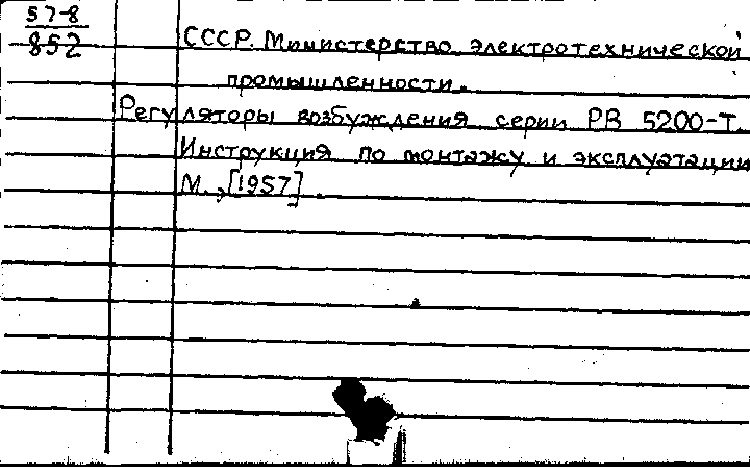 57-8
852
СССР. Министерство электротехнической
промышленности.
Регуляторы возбуждения серии РВ 5200-Т.
Инструкция по монтажу и эксплуатации
М., [1957].